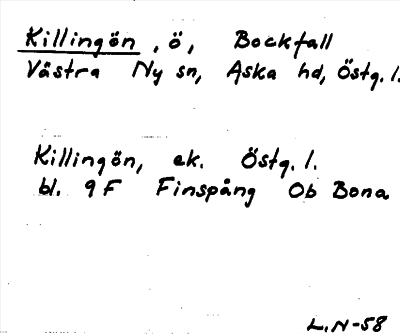 Killingön, ö, Bockfall
Västra Ny sn, Aska hd, Östg. l.
Killingön, ek. Östg. l.
bl. 9F Finspång Ob Bona
L.N-58